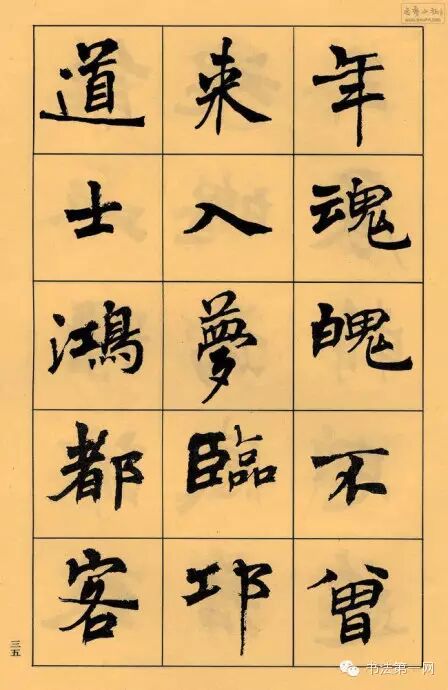 年魂魄不曾
来入夢臨邛
道士鴻都客
三五
书法第一网